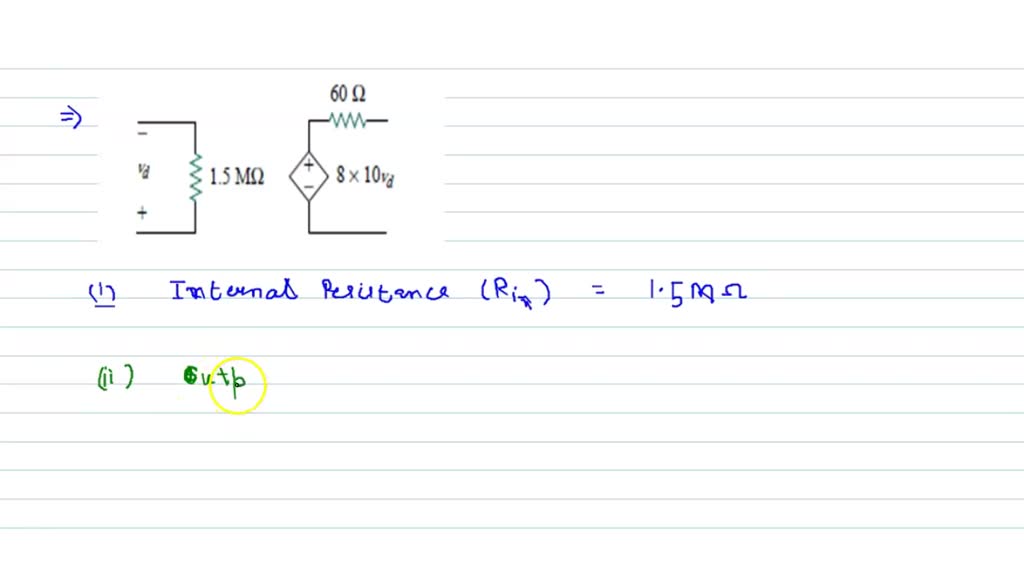 ⇒
60 Ω
−
+
vd
1.5 MΩ
+
−
8 × 10vd
+
(i) Internal Resistance (Rin) = 1.5 MΩ
(ii) Outp